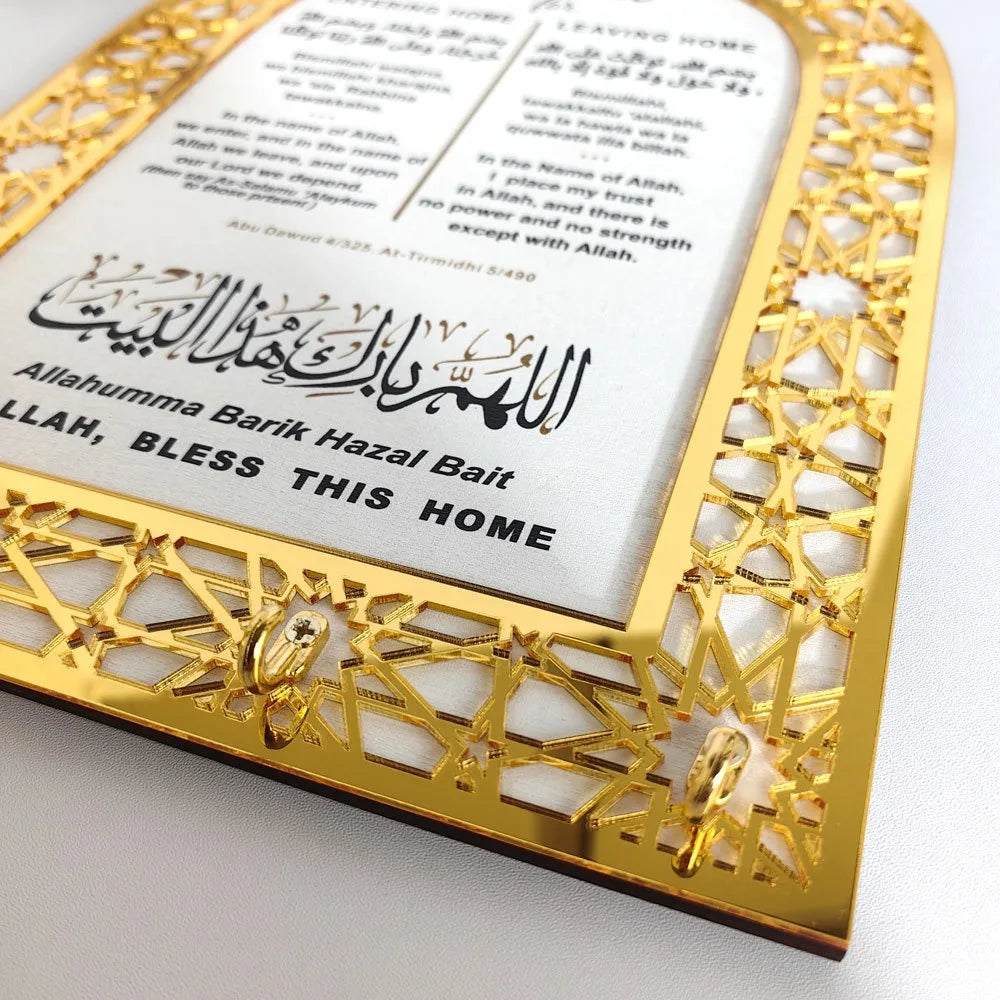 ENTERING HOME
بسم الله ولجنا، وبسم الله
خرجنا، وعلى الله ربنا توكلنا
Bismillahi walajna,
wa Bismillahi kharajna,
wa 'ala Rabbina
tawakkalna.
In the name of Allah,
we enter, and in the name of
Allah we leave, and upon
our Lord we depend.
(then say As-Salamu 'Alaykum
to those present)
LEAVING HOME
بسم الله توكلت على الله
ولا حول ولا قوة إلا بالله
Bismillahi,
tawakkaltu 'alallahi,
wa la hawla wa la
quwwata illa billah.
In the Name of Allah,
I place my trust
in Allah, and there is
no power and no strength
except with Allah.
Abu Dawud 4/325, At-Tirmidhi 5/490
اللهم بارك هذا البيت
Allahumma Barik Hazal Bait
LLAH, BLESS THIS HOME